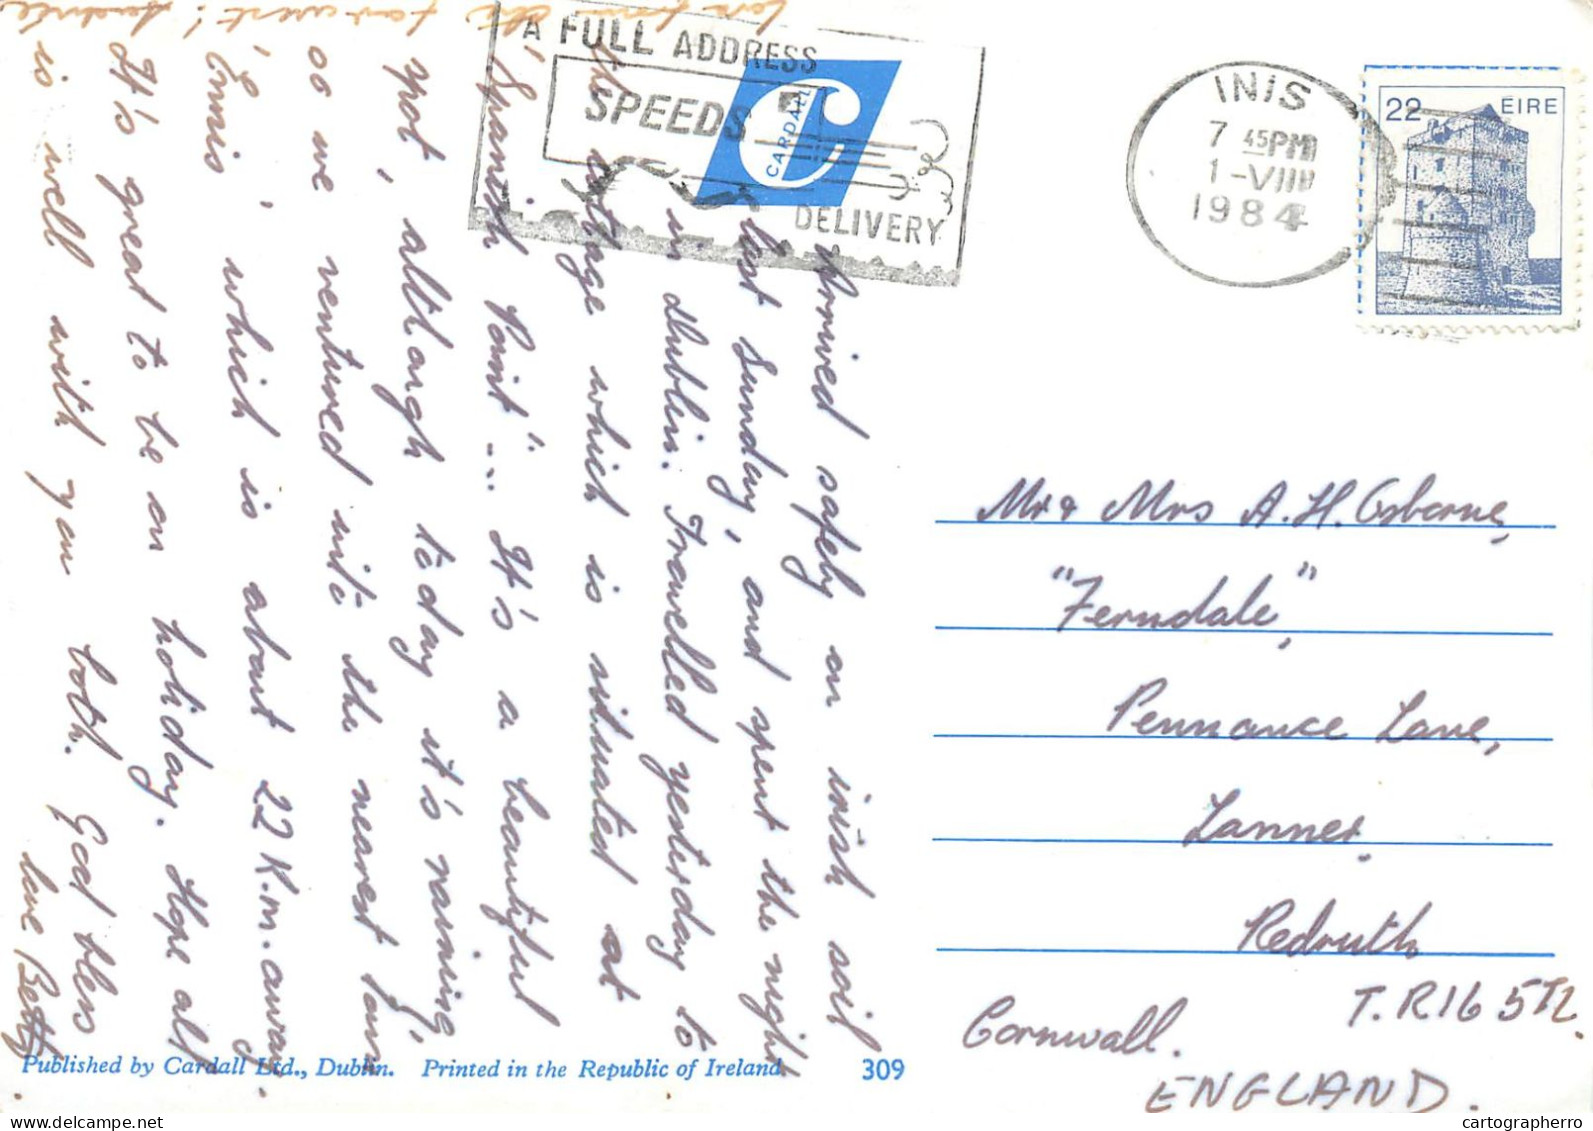 A FULL ADDRESS
SPEEDS
DELIVERY
CARDALL
INIS
7 45PM
1-VIII
1984
22 ÉIRE
Arrived safely on irish soil
last Sunday, and spent the night
in Dublin. Travelled yesterday to
the cottage which is situated at
'Spanish Point"... It's a beautiful
spot, although today it's raining,
so we ventured into the nearest town
'Ennis', which is about 22 K.m. away.
It's great to be on holiday. Hope all
is well with you both. God bless
love Betty
Love from the far west!
Mr & Mrs A. H. Osborne,
"Ferndale",
Pennance Lane,
Lanner,
Redruth
T.R16 5TL.
Cornwall.
ENGLAND.
Published by Cardall Ltd., Dublin. Printed in the Republic of Ireland 309
cartographerro